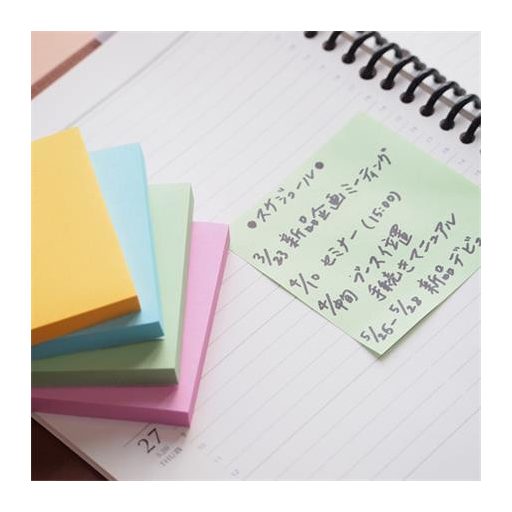 ●スケジュール●
3/23 新品企画ミーティング
4/10 セミナー(15:00)
4/旬 ブース位置
手続きマニュアル
5/25-5/28 新品デビュ
27
THUR